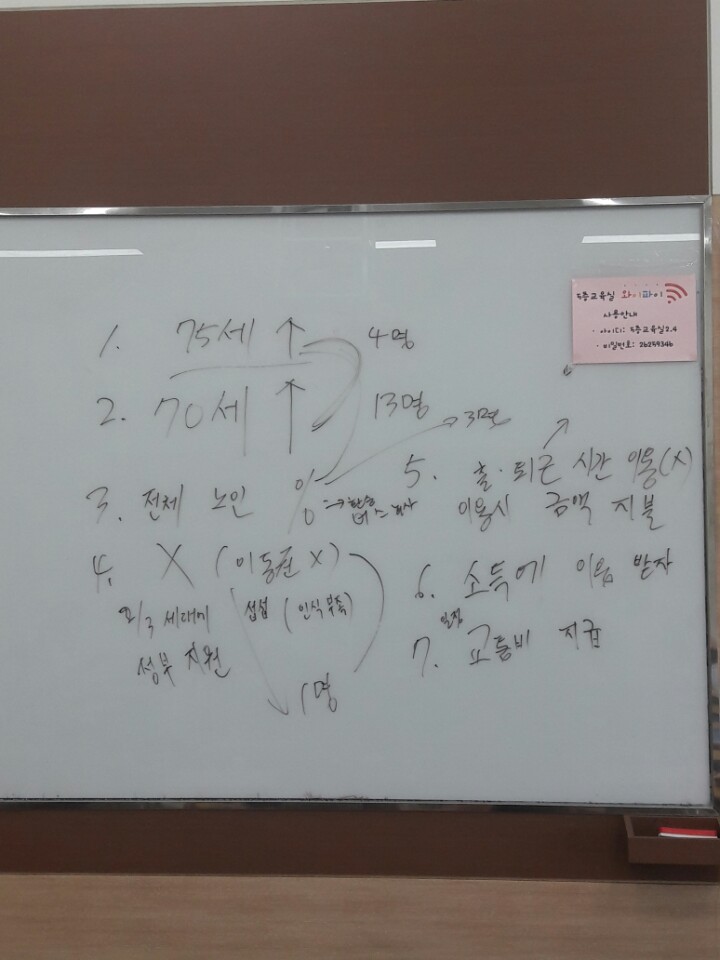 5층교육실 와이파이
사용안내
· 아이디: 5층교육실2.4
· 비밀번호: 26259346
1. 75세 ↑ 4명
2. 70세 ↑ 13명
3. 전체 노인 % → 3명
4. X (이동준 X)
2/3 세대에 섭섭 (인식 부족)
정부 지원
1명
5. 출·퇴근 시간 이용(X)
이용시 금액 지불
6. 소득에
받자
7. 일정 교통비 지급